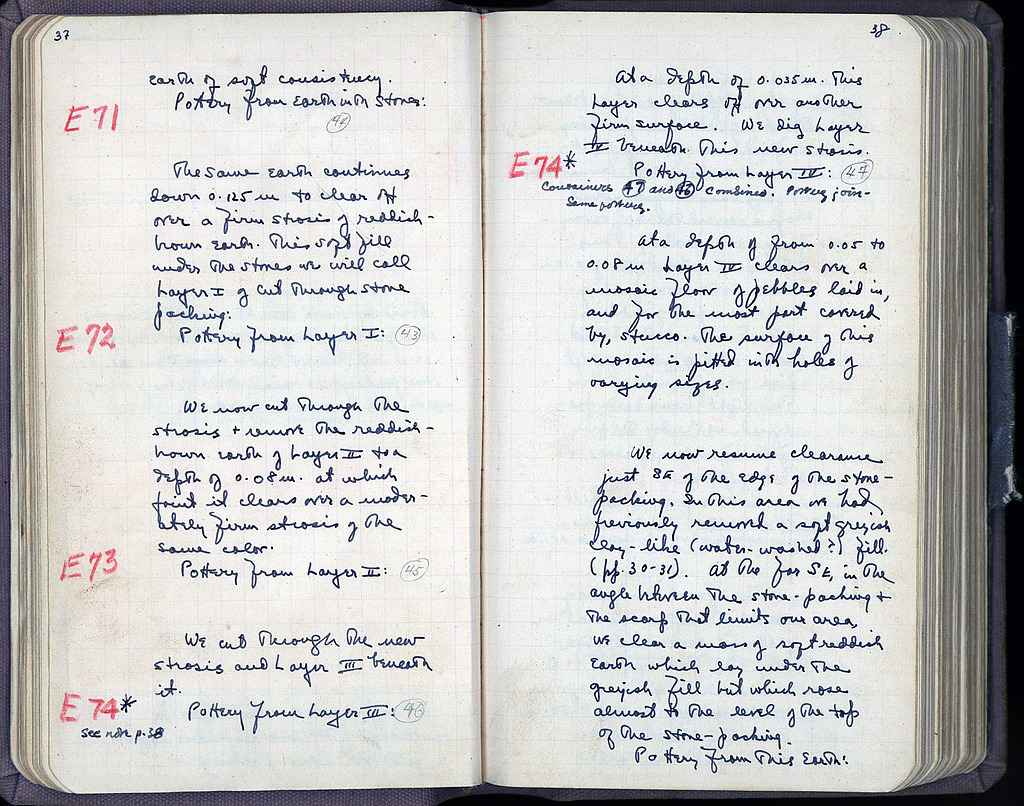 37
earth of soft consistency.
Pottery from Earth with Stones:
E71
44
The same Earth continues
down 0.125 m to clear off
over a firm strosis of reddish-
brown Earth. This soft fill
under the stones we will call
Layer I of cut through stone
packing.
E72
Pottery from Layer I: 43
We now cut through the
strosis + remove the reddish-
brown Earth of Layer II to a
depth of 0.08 m. at which
point it clears over a moder-
ately firm strosis of the
same color.
E73
Pottery from Layer II: 45
We cut through the new
strosis and Layer III beneath
it.
E74*
Pottery from Layer III: 46
see note p. 38
38
At a depth of 0.035 m. this
Layer clears off over another
firm surface. We dig Layer
IV beneath this new strosis.
E74*
Pottery from Layer IV: 47
Containers 47 and 46 combined. Pottery join-
same pottery.
At a depth of from 0.05 to
0.08 m Layer IV clears over a
mosaic floor of pebbles laid in,
and for the most part covered
by, stucco. The surface of this
mosaic is pitted with holes of
varying sizes.
We now resume clearance
just SE of the edge of the stone-
packing. In this area we had
previously removed a soft greyish
clay-like (water-washed?) fill.
(pp. 30-31). At the far SE, in the
angle between the stone-packing +
the scarp that limits our area,
we clear a mass of soft reddish
Earth which lay under the
greyish fill but which rose
almost to the level of the top
of the stone-packing.
Pottery from this Earth: